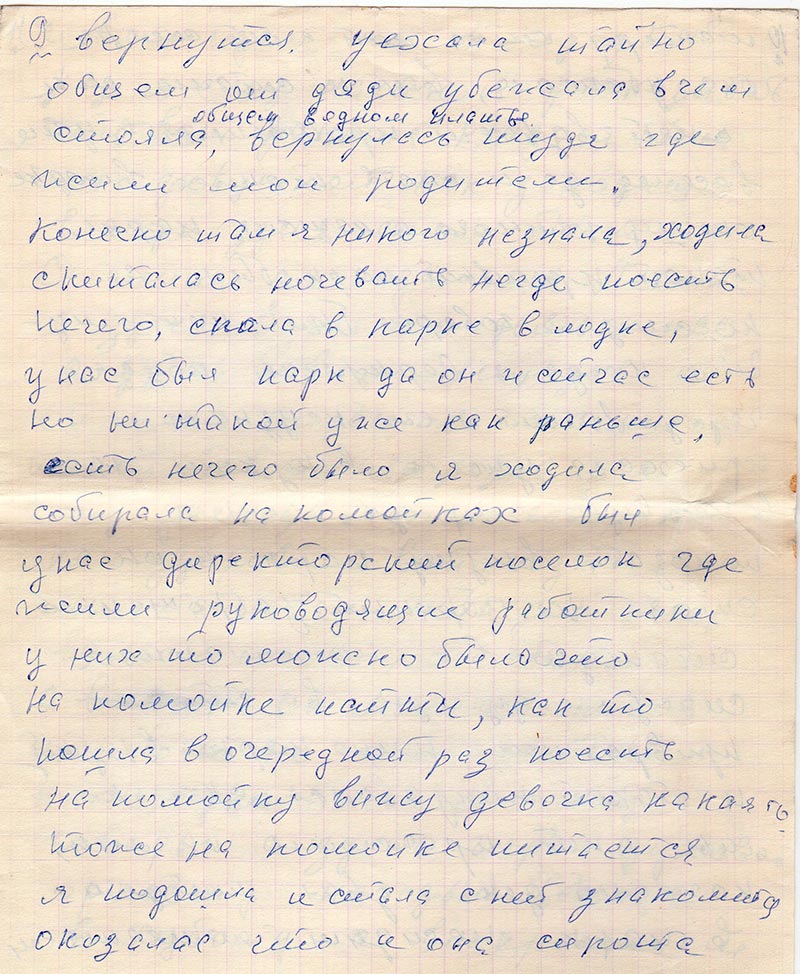 9 вернутся. уехала тайно
общем от дяди убежала в чем
общем в одном платье
стояла, вернулась туда где
жили мои родители.
Конесно там я никого незнала, ходила
скиталась ночевать негде поесть
нечего, спала в парке в лодке,
у нас был парк да он и сейчас есть
но ни такой уже как раньше,
есть нечего было я ходила
собирала на помойках был
у нас директорский поселок где
жили руководящие работники
у них то можно было что
на помойке найти, как то
пошла в очередной раз поесть
на помойку вижу девочка какая то
тоже на помойке питается
я подошла и стала с ней знакомится
оказалас что и она сирота